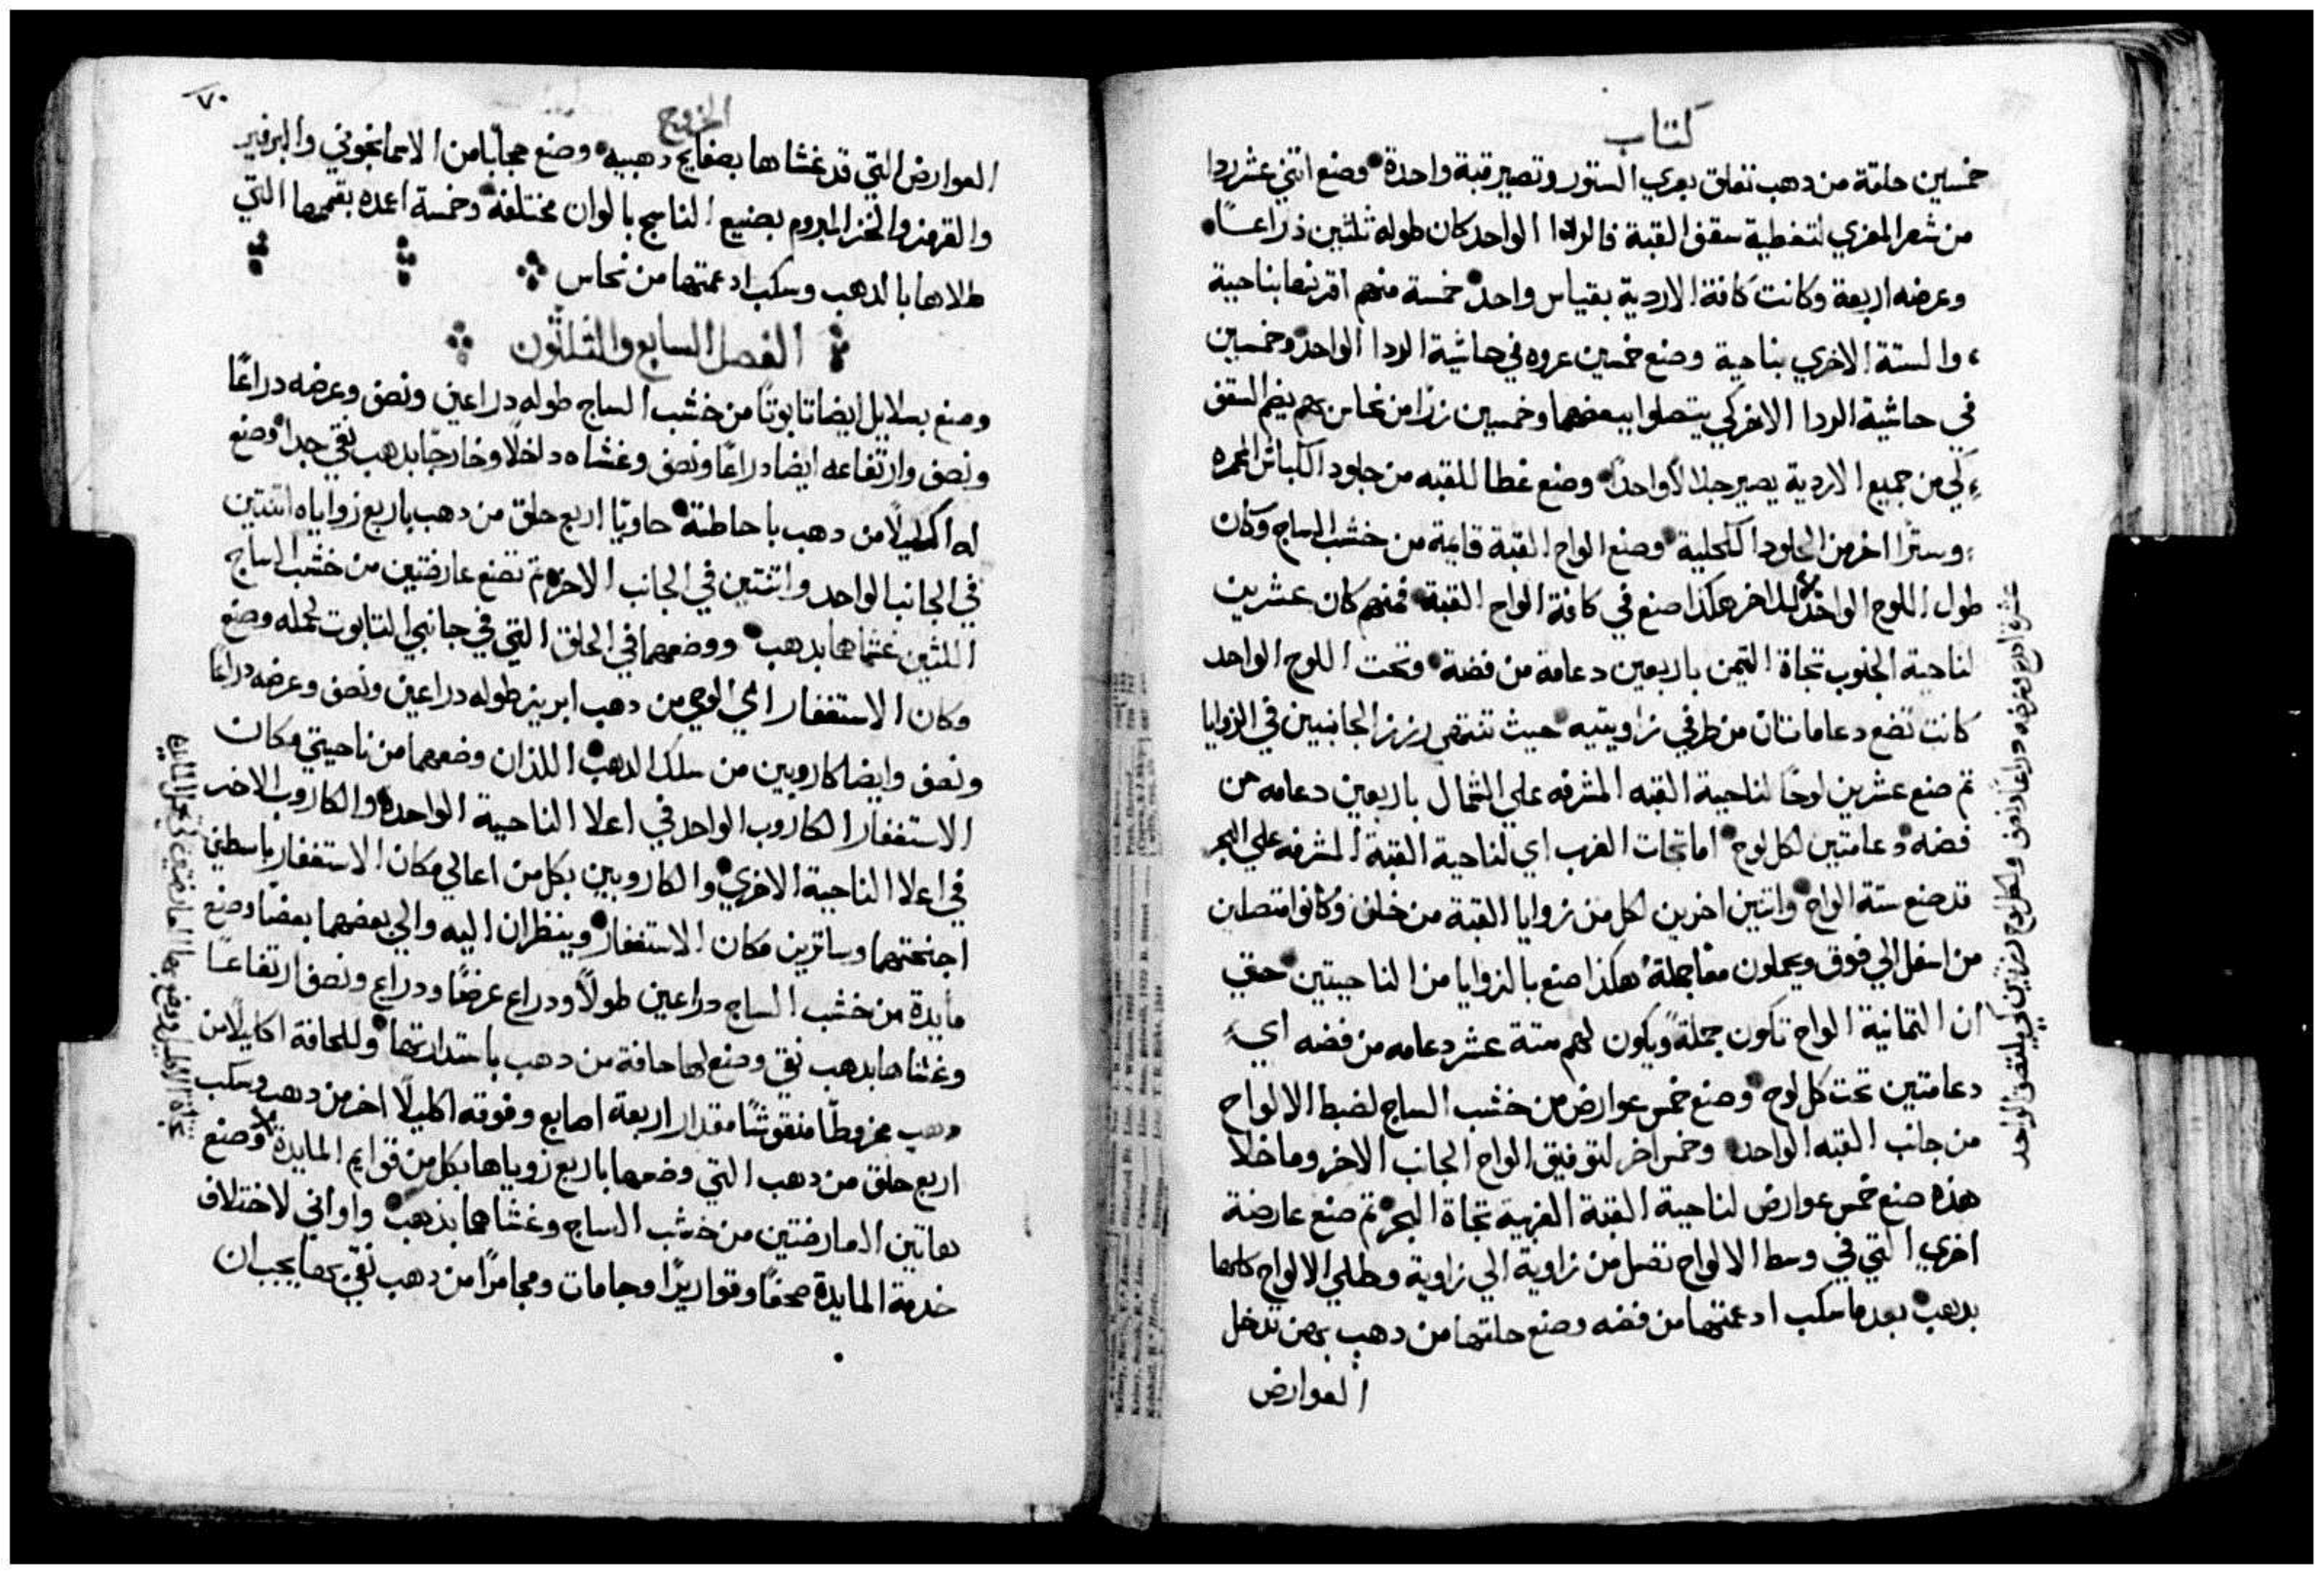 كتاب
خمسين حلقة من دهب تتعلق بعري الستور وتصير قبة واحدة وصنع اتني عشر ردا
من شعر المعزي لتغطية سقف القبة فالردا الواحد كان طوله ثلثين ذراعاً
وعرضه اربعة وكانت كافة الاردية بقياس واحد خمسة منهم اقرنها بناحية
والستة الاخري بناحية وصنع خمسين عروه في حاشية الردا الواحد وخمسين
في حاشية الردا الاخر كي يتصلوا ببعضهما وخمسين زرا من نحاس بهم يضم السقف
كي من جميع الاردية يصير جلالاً واحداً وصنع غطا للقبه من جلود الكباش المحمره
وستراً اخر من الجلود الكحلية وصنع الواح القبة قايمة من خشب الساج وكان
طول اللوح الواحد للاخر هكذا صنع في كافة الواح القبة فمنهم كان عشرين
لناحية الجنوب تجاة التيمن باربعين دعامة من فضة وتحت اللوح الواحد
كانت تضع دعامتان من طرفي زاويتيه حيث تنتهي رزز الجانبين في الزوايا
تم صنع عشرين لوحاً لناحية القبه المشرفه علي الشمال باربعين دعامه من
فضه دعامتين لكل لوح اما تجات الغرب اي لناحية القبة المشرفه علي البحر
قد صنع ستة الواح واتنين اخرين لكل من زوايا القبة من خلف وكانوا متصلين
من اسفل الي فوق ويحملون معا جملة هكذا صنع بالزوايا من الناحيتين حتي
ان التمانية الواح تكون جملةً ويكون لهم ستة عشر دعامه من فضه اي
دعامتين تحت كل لوح وصنع خمس عوارض من خشب الساج لضبط الالواح
من جانب القبه الواحد وخمس اخر لتوفيق الواح الجانب الاخر وما خلا
هذه صنع خمس عوارض لناحية القبة الغربية تجاة البحر تم صنع عارضة
اخري التي في وسط الالواح تصل من زاوية الي زاوية وطلي الالواح كلها
بدهب بعد ما سكب ادعمتها من فضه وصنع حلقها من دهب بهن تدخل
العوارض
عشرة ادرع وعرضه دراعاً ونصف ولكل لوح رزتين كي يلتصق الواحد
الخروج
٧٠
العوارض التي قد غشاها بصفايح دهبيه وصنع حجاباً من الاسمانجوني والبرفير
والقرمز والخز المبروم بصنيع الناسج بالوان مختلفة وخمسة اعمده بقممها التي
طلاها بالدهب وسكب ادعمتها من نحاس
الفصل السابع والثلثون
وصنع بصلايل ايضا تابوتاً من خشب الساج طوله دراعين ونصف وعرضه دراعاً
ونصف وارتفاعه ايضا دراعاً ونصف وغشاه داخلاً وخارجاً بدهب نقي جدا وصنع
له اكليلاً من دهب باحاطته حاوياً اربع حلق من دهب باربع زواياه اتنتين
في الجانب الواحد واتنتين في الجانب الاخر تم تصنع عارضتين من خشب الساج
اللتين غشاها بدهب ووضعهما في الحلق التي في جانبي التابوت لحمله وصنع
مكان الاستغفار اي الوحي من دهب ابريز طوله دراعين ونصف وعرضه دراعاً
ونصف وايضا كاروبين من سلك الدهب اللذان وضعهما من ناحيتي مكان
الاستغفار الكاروب الواحد في اعلا الناحية الواحدة والكاروب الاخر
في اعلا الناحية الاخري والكاروبين بكل من اعالي مكان الاستغفار باسطين
اجنحتهما وساترين مكان الاستغفار وينظران اليه والي بعضهما بعضاً وصنع
مايدة من خشب الساج دراعين طولاً ودراع عرضاً ودراع ونصف ارتفاعاً
وغشاها بدهب نقي وصنع لها حافة من دهب باستدارتها وللحافة اكليلاً من
دهب مخروطاً منقوشاً مقدار اربعة اصابع وفوقه اكليلاً اخر من دهب وسكب
اربع حلق من دهب التي وضعها باربع زوياها بكل من قوايم المايدة وصنع
هاتين العارضتين من خشب الساج وغشاهما بذهب واواني لاختلاف
خدمة المايدة صحفاً وقواريراً وجامات ومجامراً من دهب نقي بها يجب ان
تجاة الاكليل ووضع بها العارضتين كي تحمل المايدة